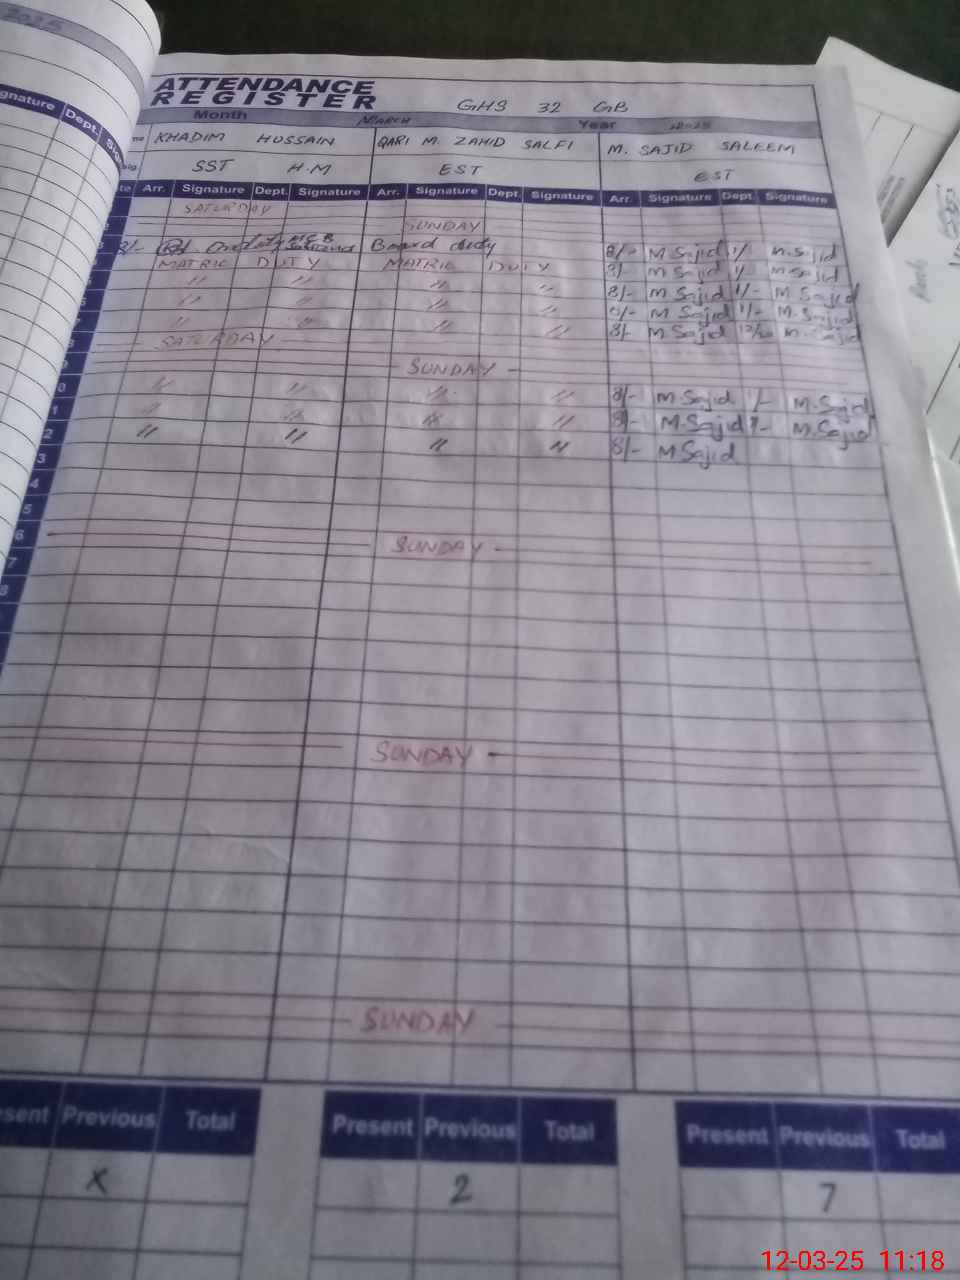 2025
ATTENDANCE
REGISTER
GHS 32 GB
Month MARCH Year 2025
KHADIM HUSSAIN QARI M. ZAHID SALFI M. SAJID SALEEM
SST H.M EST EST
gnature Dept.
Arr. Signature Dept. Signature Arr. Signature Dept. Signature Arr. Signature Dept. Signature
SATURDAY
SUNDAY
8/- Board duty 8/- M Sajid 1/ M.Sajid
MATRIC DUTY MATRIC DUTY 8/- M Sajid 1/ M Sajid
〃 〃 〃 〃 8/- M Sajid 1/- M Sajid
〃 〃 〃 〃 8/- M Sajid 1/- M.Sajid
〃 〃 〃 〃 8/- M Sajid M.Sajid
SATURDAY
SUNDAY
〃 〃 〃 〃 8/- M.Sajid 1/- M.Sajid
〃 〃 〃 〃 8/- M.Sajid M.Sajid
2 〃 〃 〃 〃 8/- M Sajid
3
4
5
6 SUNDAY
7
8
SUNDAY
SUNDAY
esent Previous Total Present Previous Total Present Previous Total
x 2 7
12-03-25 11:18